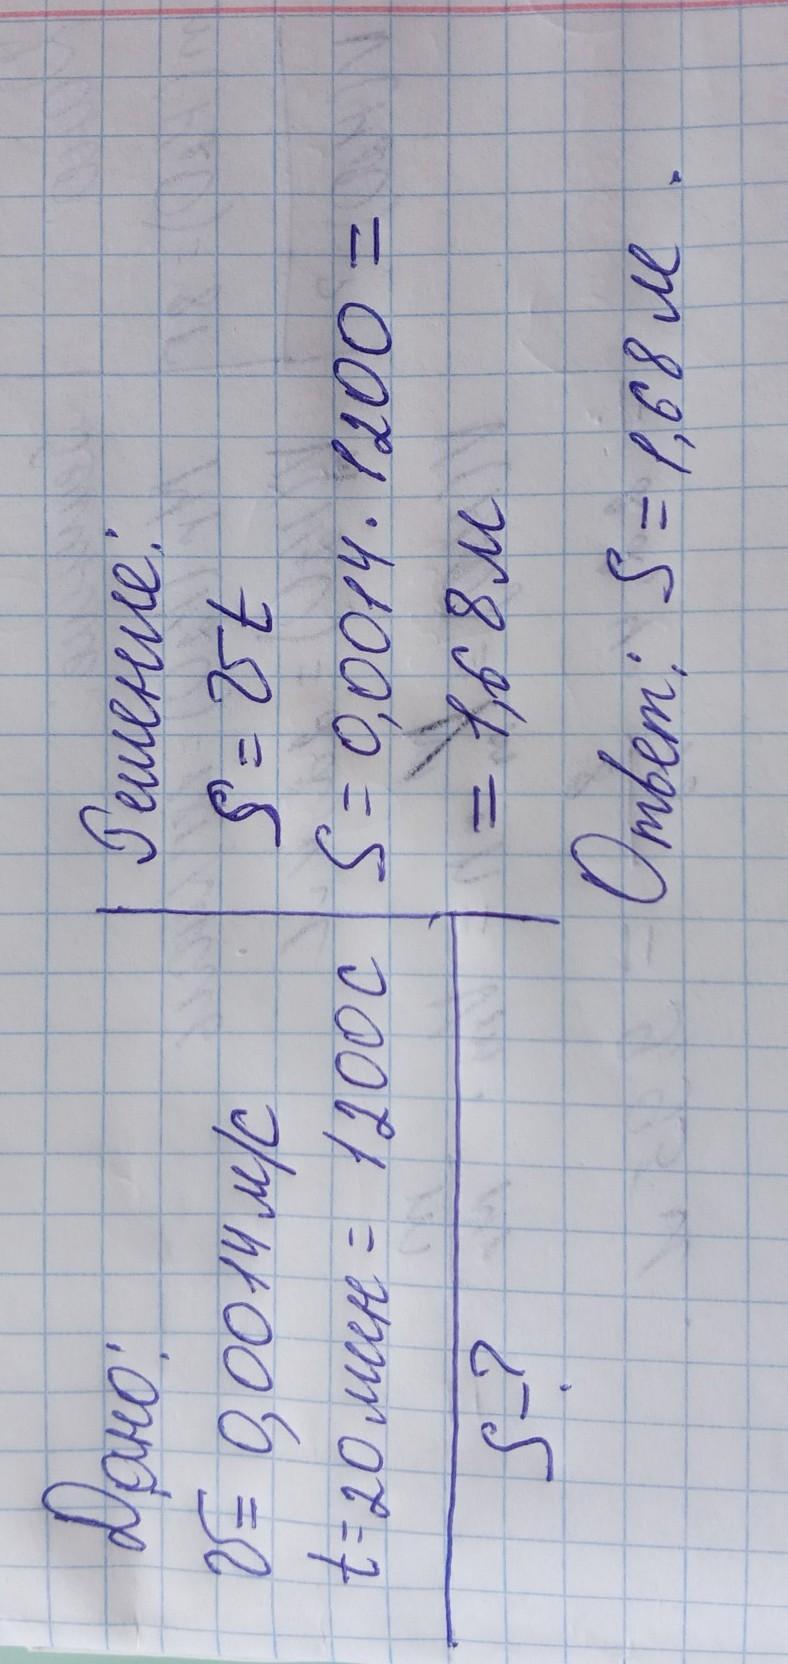 Дано:
v = 0,0014 м/с
t = 20 мин = 1200 с
S - ?
Решение:
S = vt
S = 0,0014 · 1200 =
= 1,68 м
Ответ: S = 1,68 м.